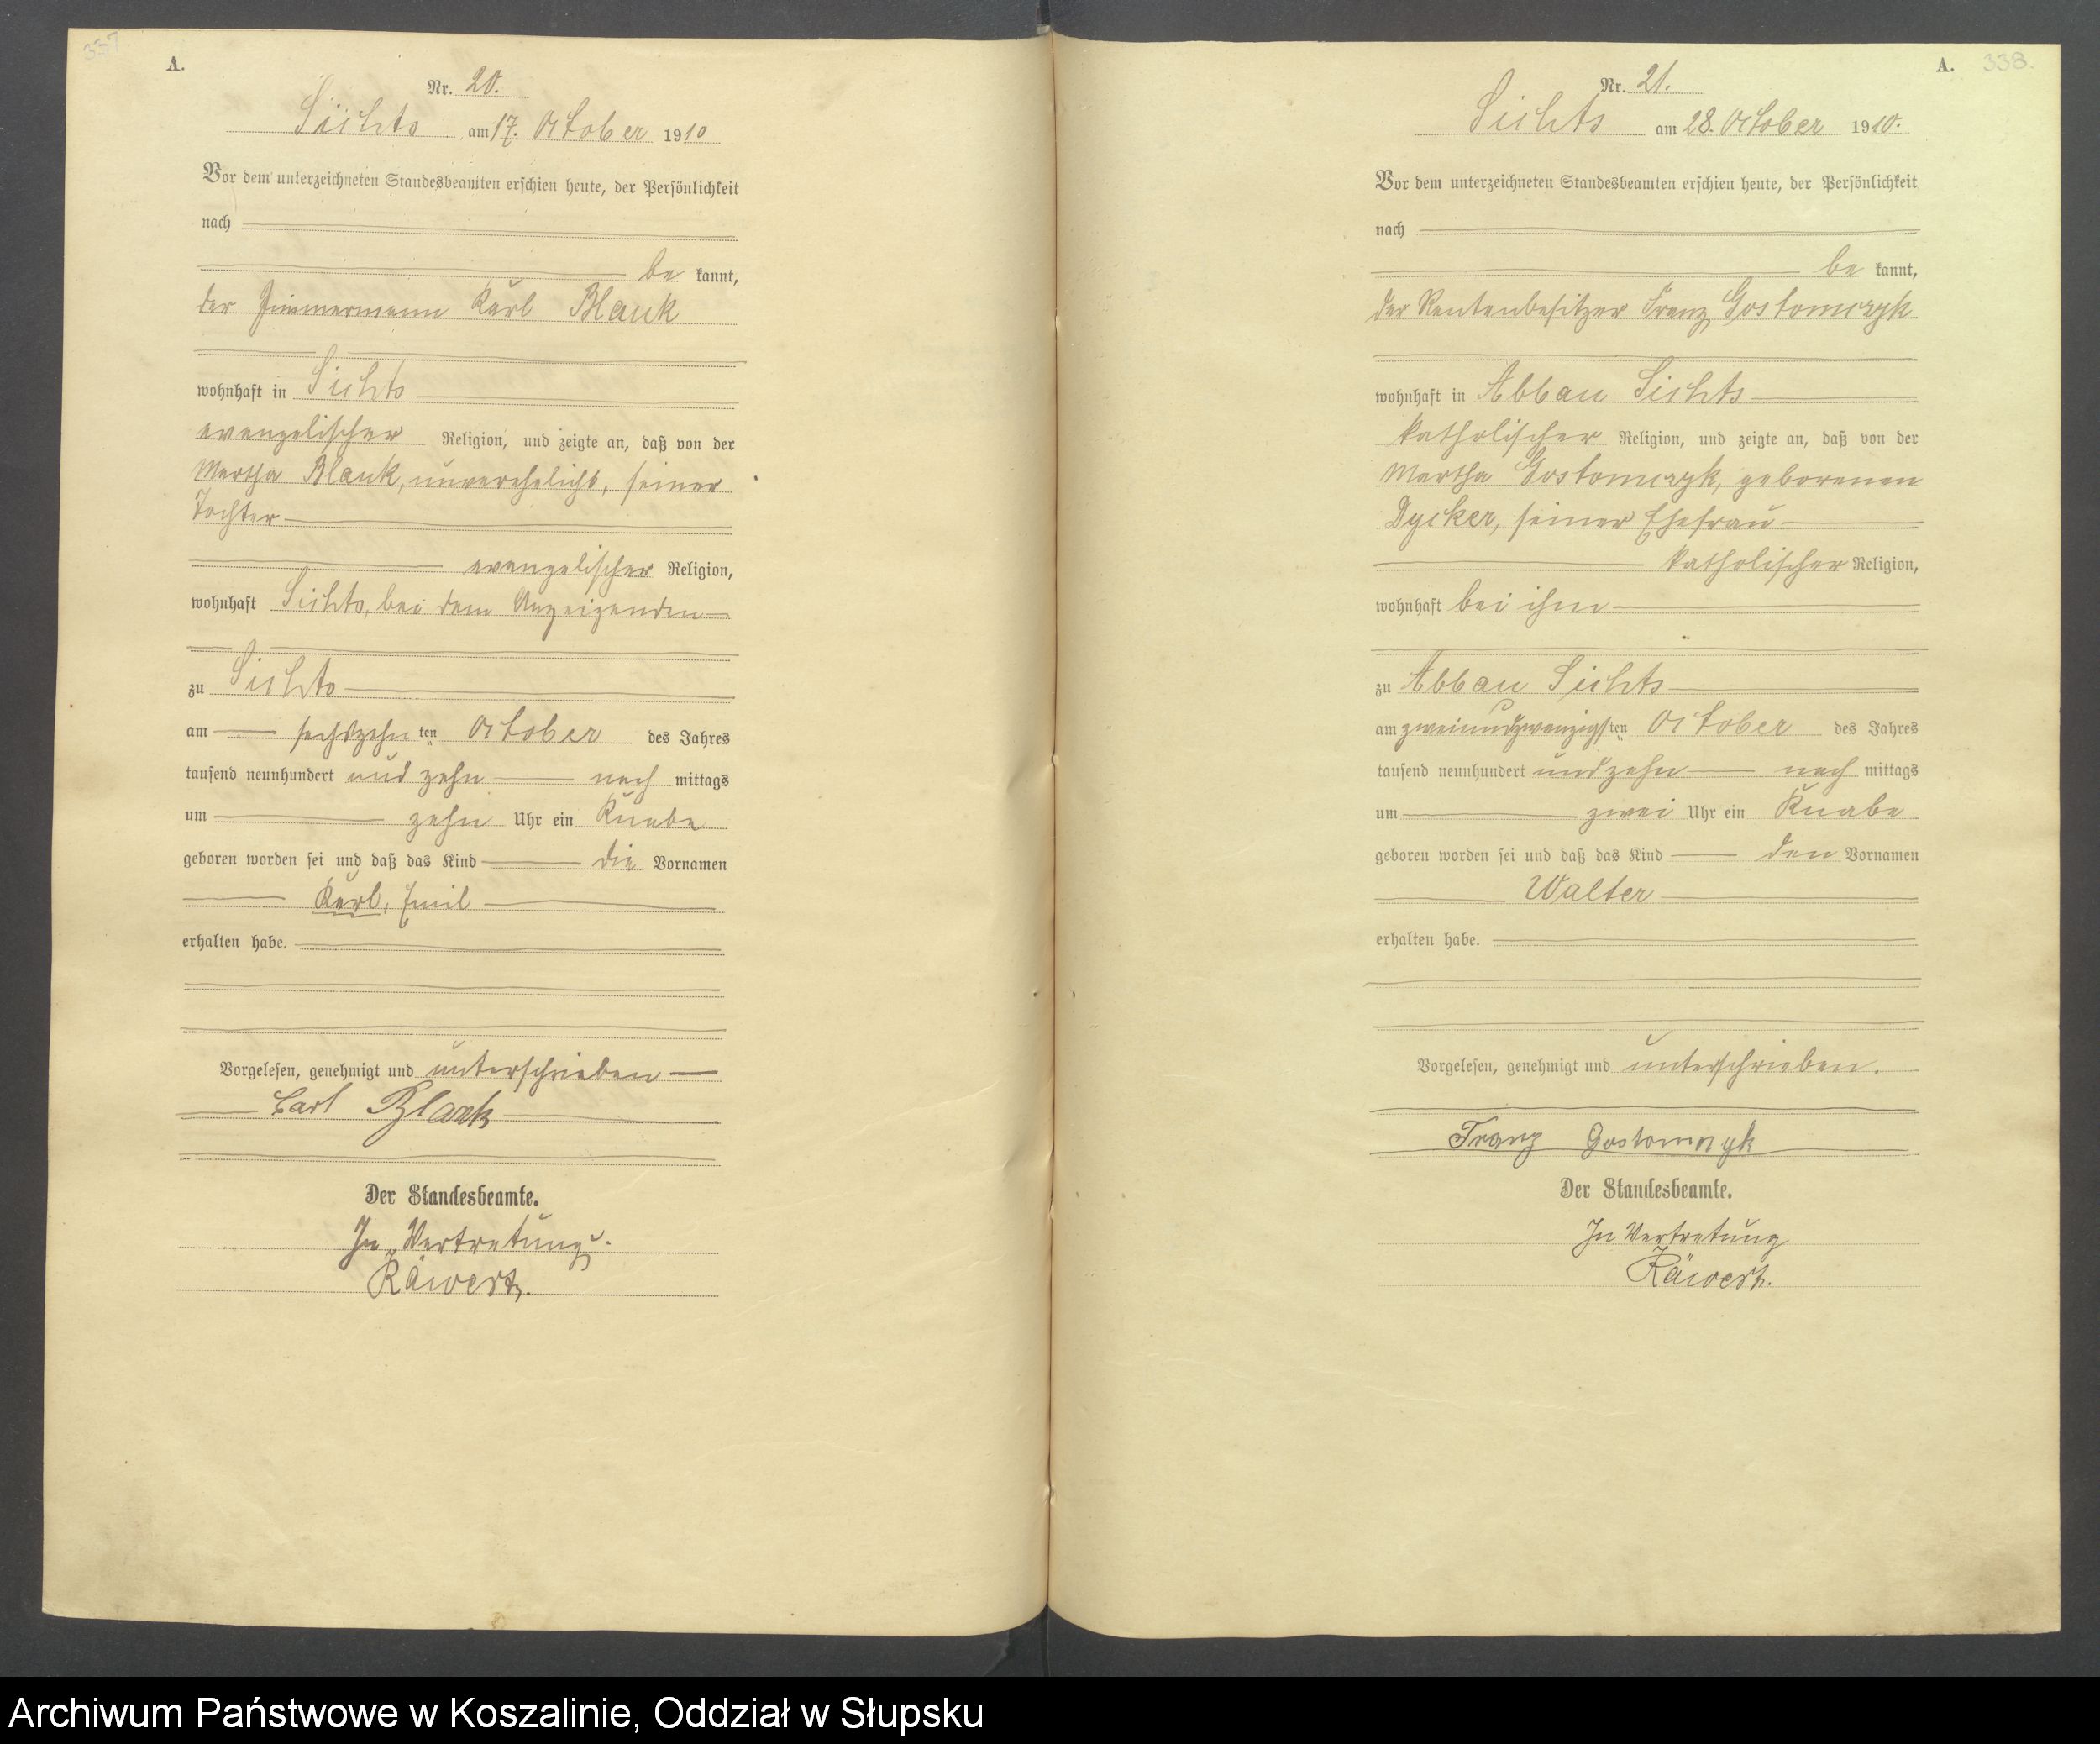 337.
A.
Nr. 20.
Sichts am 17. October 1910
Vor dem unterzeichneten Standesbeamten erschien heute, der Persönlichkeit
nach
be kannt,
der Zimmermann Karl Blank
wohnhaft in Sichts
evangelischer Religion, und zeigte an, daß von der
Martha Blank, unverehelicht, seiner
Tochter
evangelischer Religion,
wohnhaft Sichts, bei dem Anzeigenden
zu Sichts
am sechszehn ten October des Jahres
tausend neunhundert und zehn nach mittags
um zehn Uhr ein Knabe
geboren worden sei und daß das Kind die Vornamen
Karl, Emil
erhalten habe.
Vorgelesen, genehmigt und unterschrieben
Carl Blank
Der Standesbeamte.
In Vertretung.
Räwert.
A. 338.
Nr. 21.
Sichts am 28. October 1910.
Vor dem unterzeichneten Standesbeamten erschien heute, der Persönlichkeit
nach
be kannt,
der Rentenbesitzer Franz Gostomczyk
wohnhaft in Abbau Sichts
katholischer Religion, und zeigte an, daß von der
Martha Gostomczyk, geborenen
Dycker, seiner Ehefrau
katholischer Religion,
wohnhaft bei ihm
zu Abbau Sichts
am zweiundzwanzigsten October des Jahres
tausend neunhundert und zehn nach mittags
um zwei Uhr ein Knabe
geboren worden sei und daß das Kind den Vornamen
Walter
erhalten habe.
Vorgelesen, genehmigt und unterschrieben.
Franz Gostomczyk
Der Standesbeamte.
In Vertretung
Räwert.
Archiwum Państwowe w Koszalinie, Oddział w Słupsku